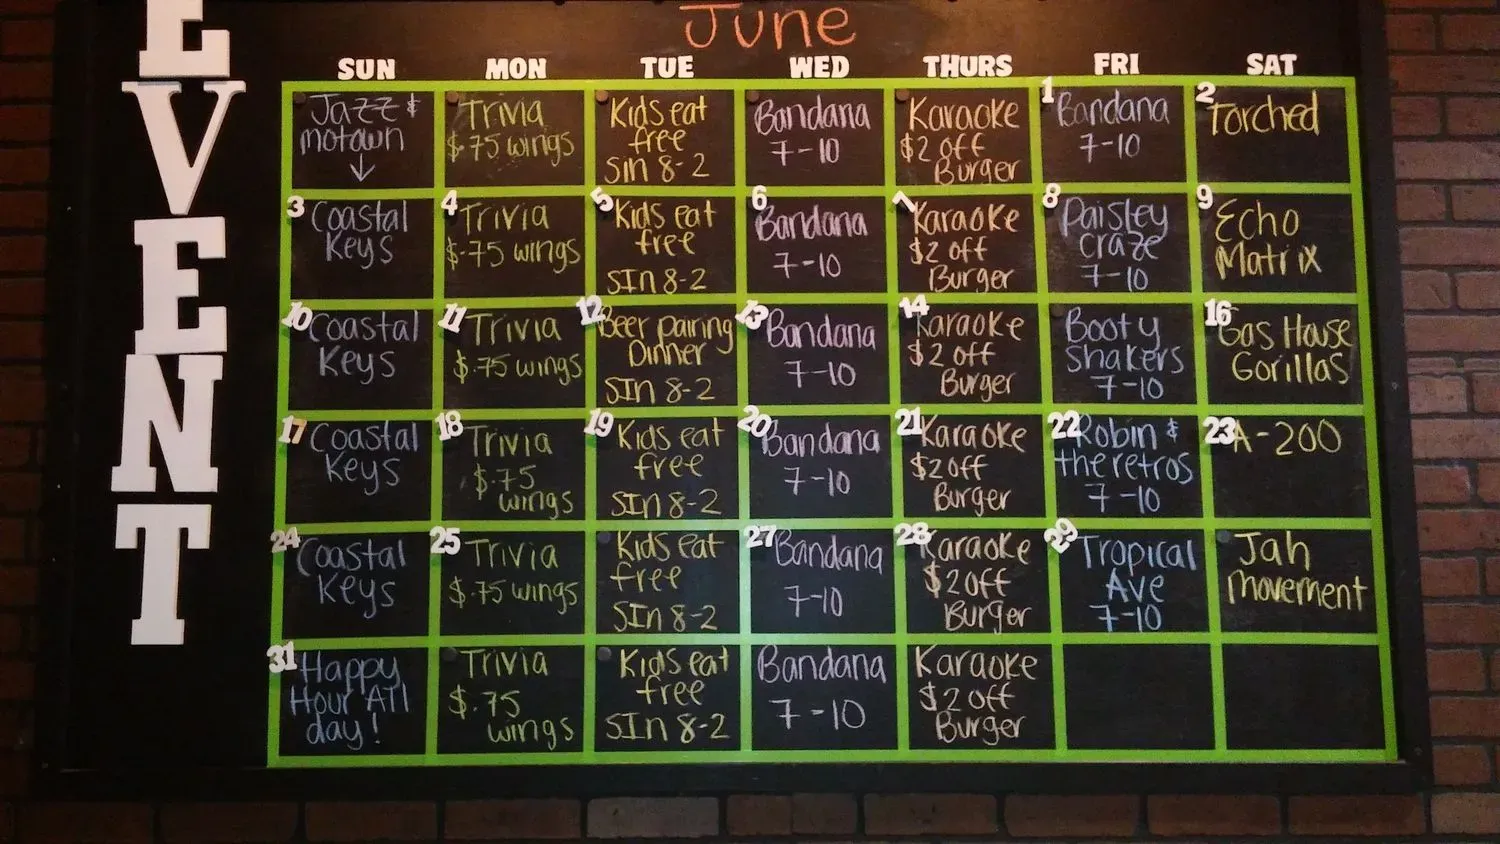 EVENT
June
SUN MON TUE WED THURS FRI SAT
Jazz &
motown
↓
Trivia
$.75 wings
Kids eat
free
SIn 8-2
Bandana
7-10
Karaoke
$2 off
Burger
1
Bandana
7-10
2
Torched
3
Coastal
Keys
4
Trivia
$.75 wings
5
Kids eat
free
SIn 8-2
6
Bandana
7-10
7
Karaoke
$2 off
Burger
8
Paisley
craze
7-10
9
Echo
Matrix
10
Coastal
Keys
11
Trivia
$.75 wings
12
Beer pairing
Dinner
SIn 8-2
13
Bandana
7-10
14
Karaoke
$2 off
Burger
Booty
Shakers
7-10
16
Gas House
Gorillas
17
Coastal
Keys
18
Trivia
$.75
wings
19
Kids eat
free
SIn 8-2
20
Bandana
7-10
21
Karaoke
$2 off
Burger
22
Robin &
the retros
7-10
23
A-200
24
Coastal
Keys
25
Trivia
$.75 wings
Kids eat
free
SIn 8-2
27
Bandana
7-10
28
Karaoke
$2 off
Burger
29
Tropical
Ave
7-10
Jah
Movement
31
Happy
Hour All
day!
Trivia
$.75
wings
Kids eat
free
SIn 8-2
Bandana
7-10
Karaoke
$2 off
Burger